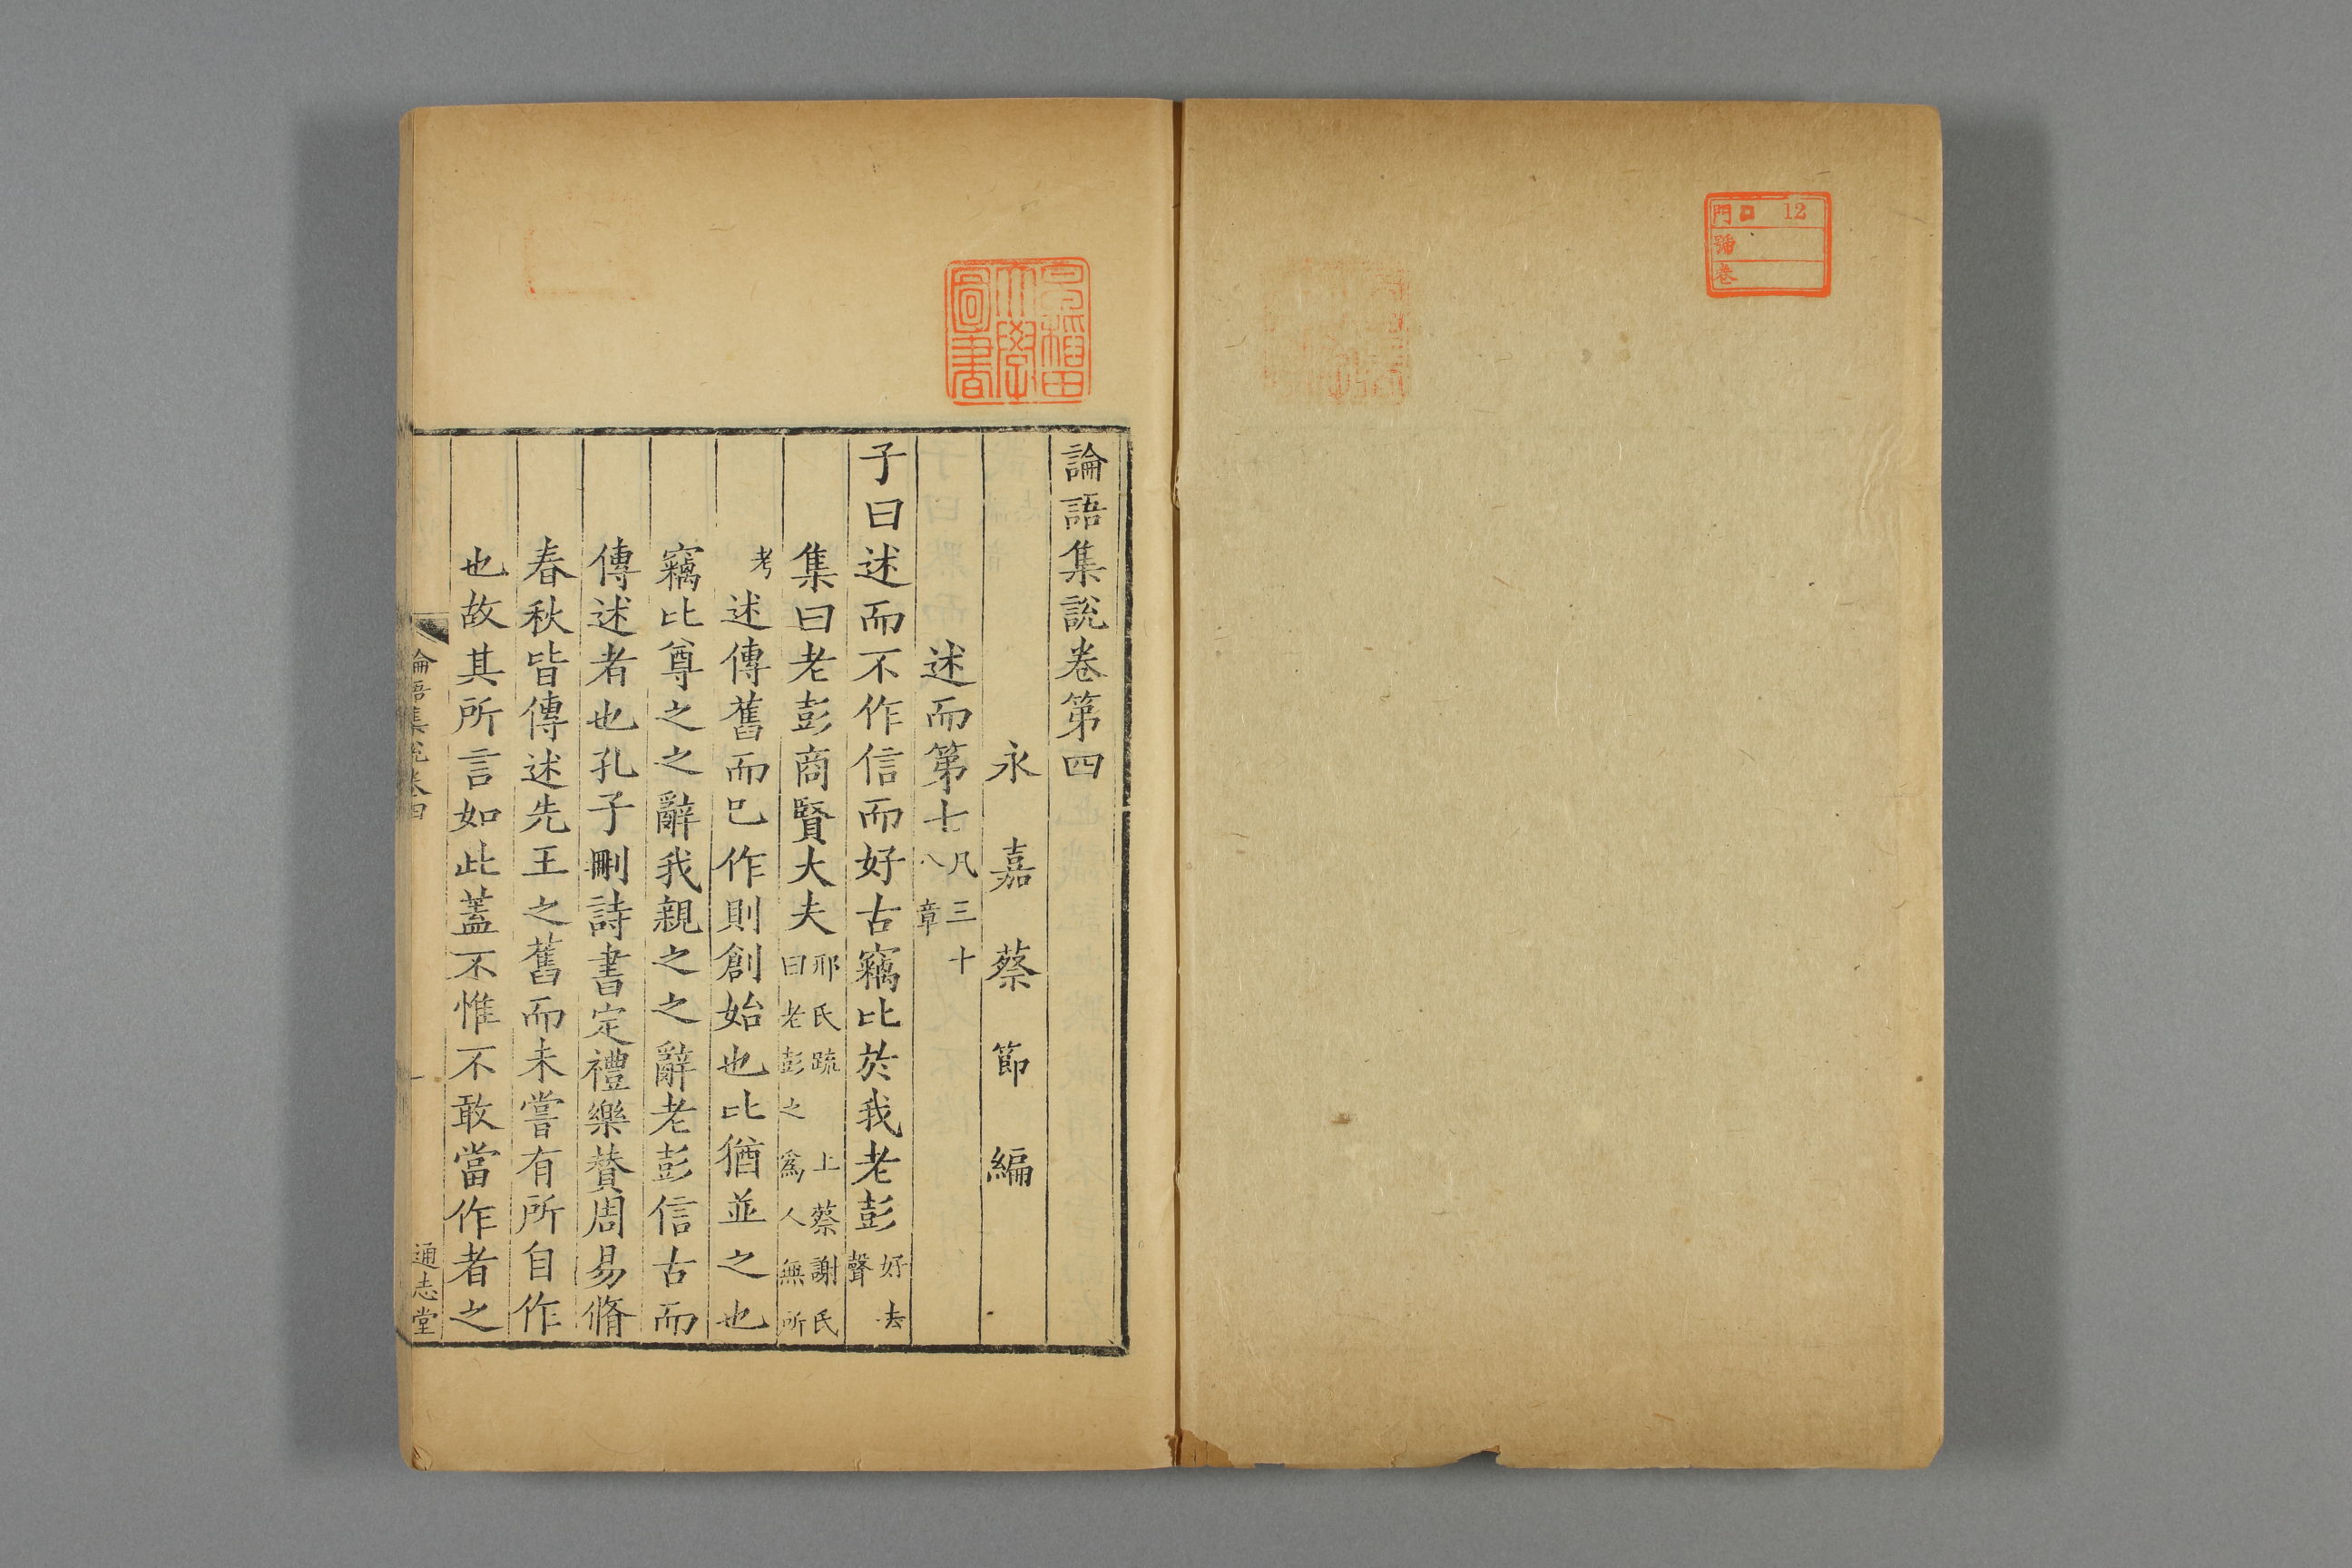 門口 12
號
卷
早稲田
大學
圖書
論語集說卷第四
永嘉蔡節編
述而第七凡三十八章
子曰述而不作信而好古竊比於我老彭好去聲
集曰老彭商賢大夫邢氏疏曰老彭之上蔡謝氏爲人無所
考述傳舊而已作則創始也比猶並之也
竊比尊之之辭我親之之辭老彭信古而
傳述者也孔子刪詩書定禮樂贊周易脩
春秋皆傳述先王之舊而未嘗有所自作
也故其所言如此蓋不惟不敢當作者之
論語集說卷四 一 通志堂